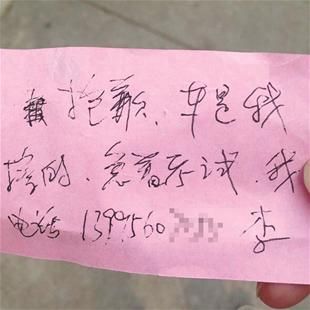 抱歉、车是我
撞的、急着考试、我
电话 1399560 李